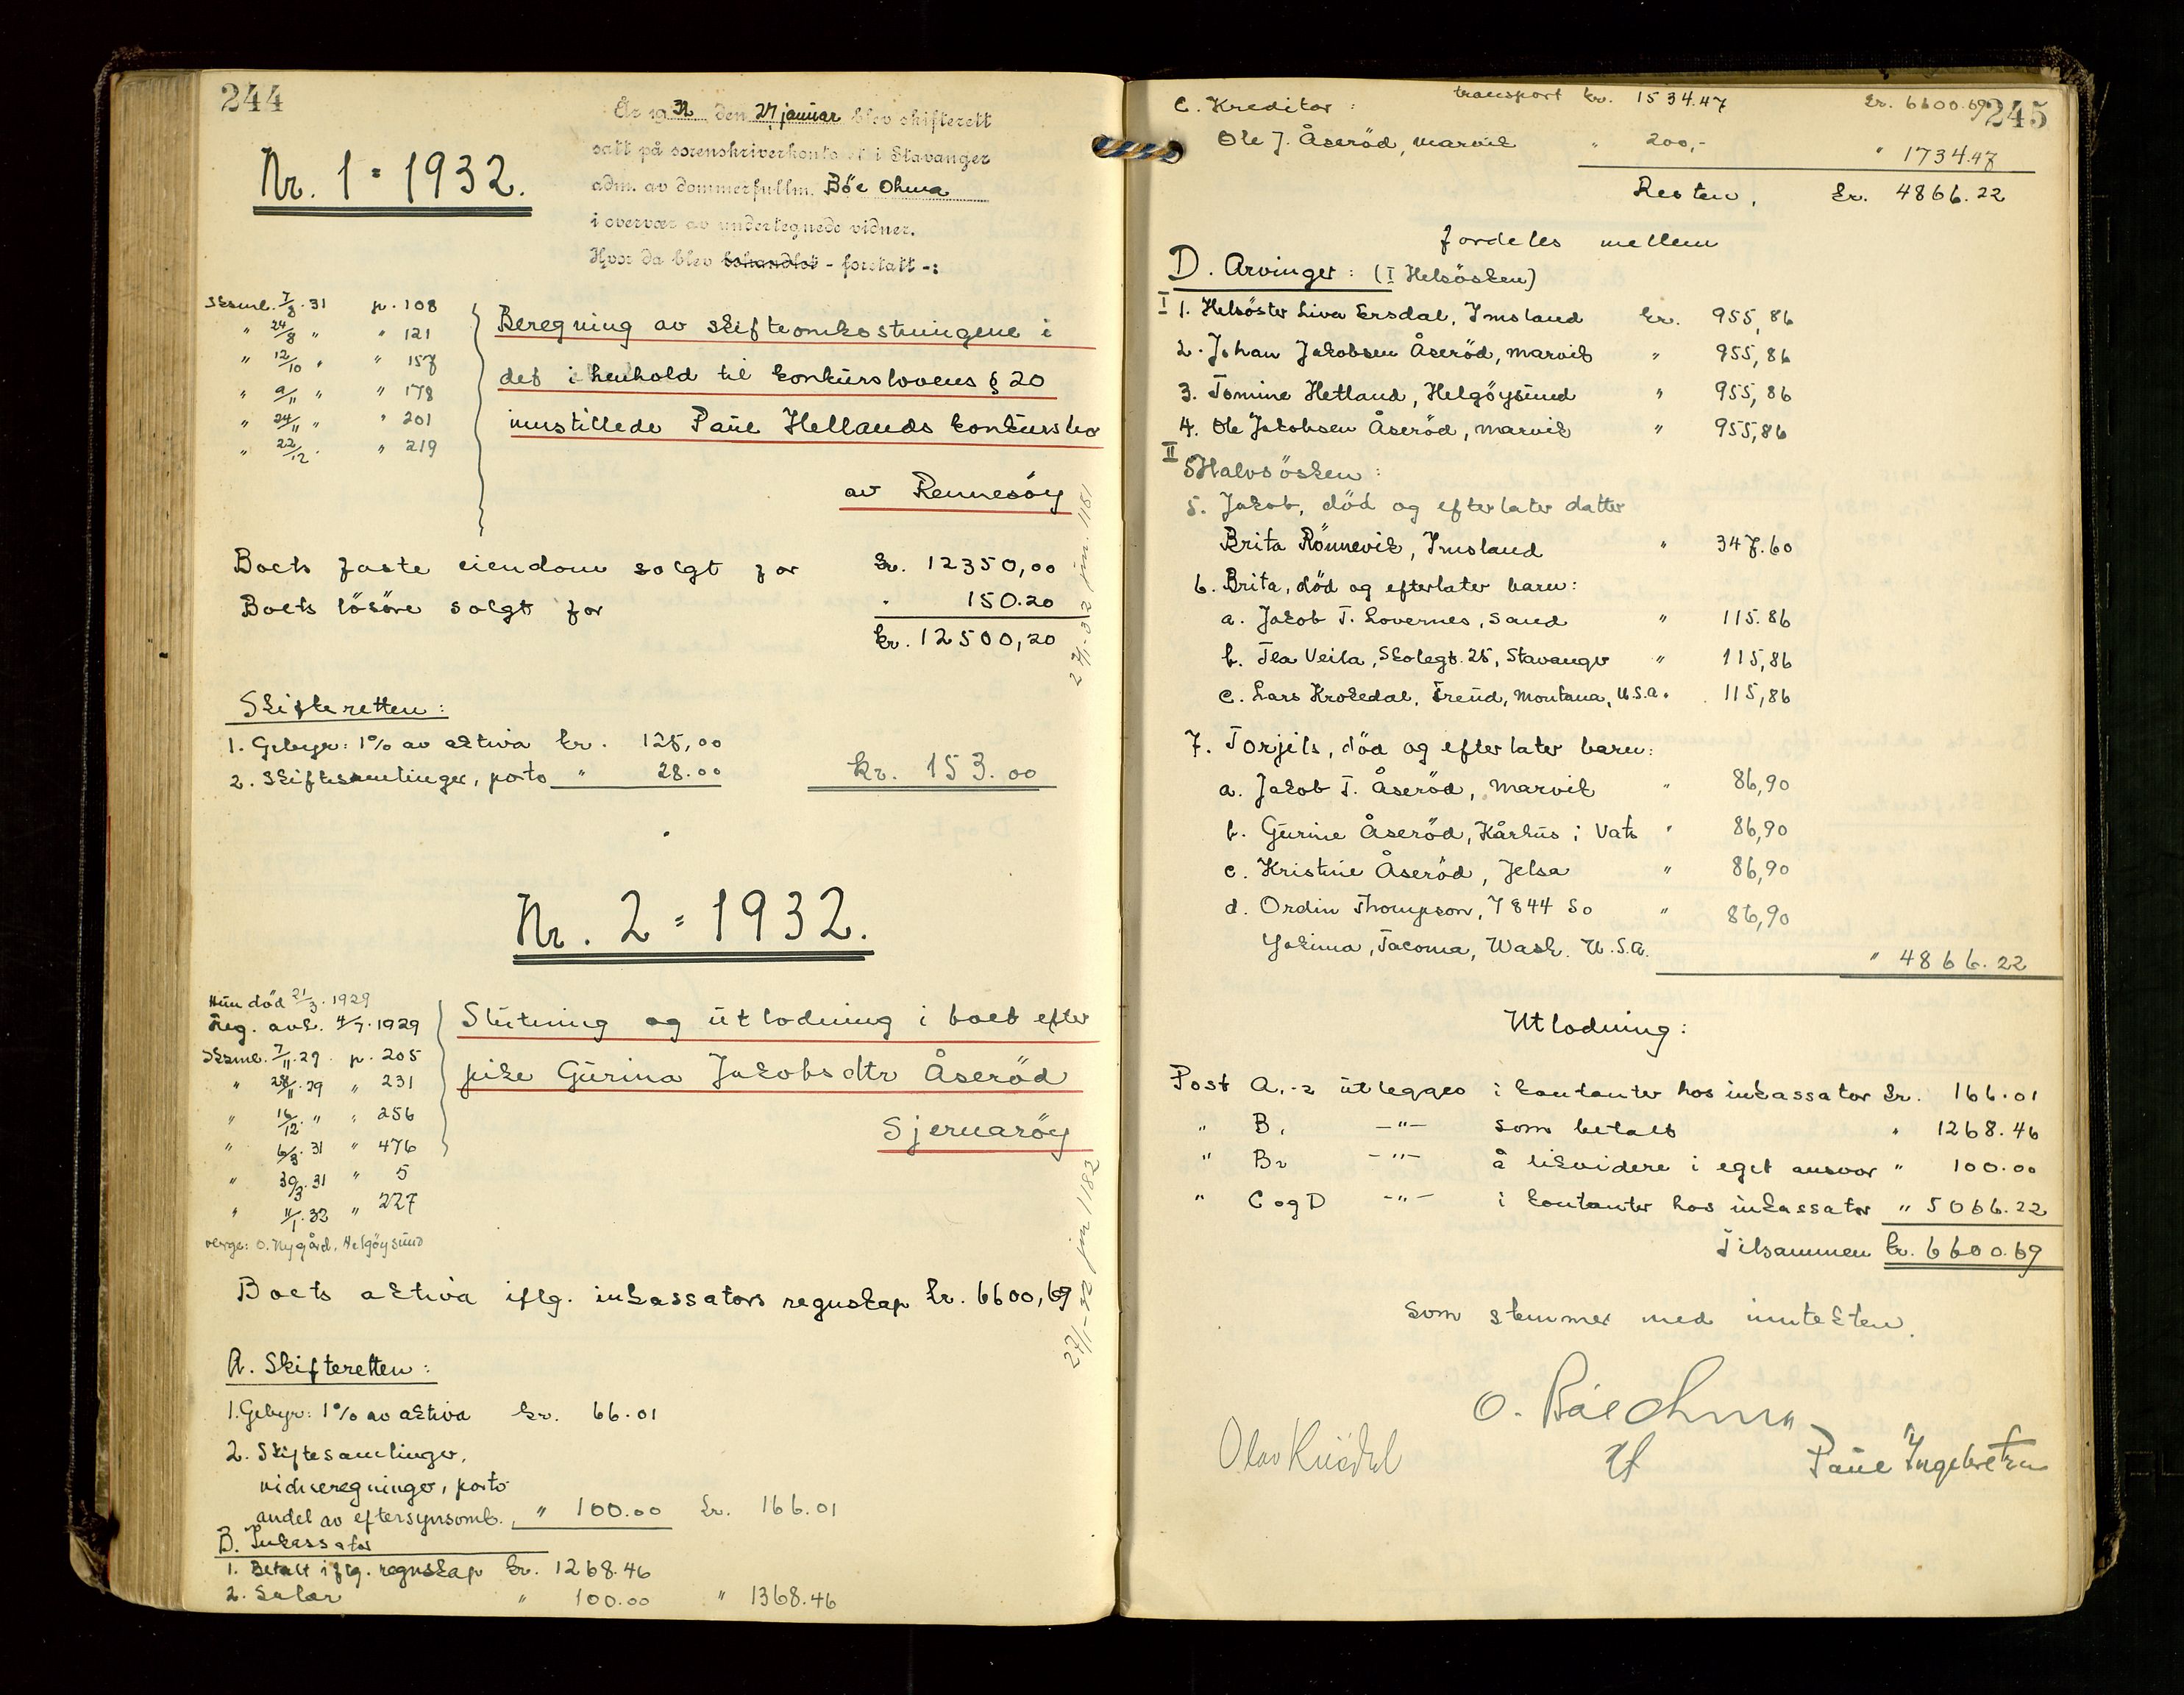 244
År 1932 den 27 januar blev skifterett
satt på sorenskriverkontoret i Stavanger
adm. av dommerfullm. Bőe Ohma
i overvær av undertegnede vidner.
Hvor da blev behandlet - foretatt -:
Nr. 1 = 1932.
Sksml. 7/8. 31 p. 108
" 24/8 " " 121
" 12/10 " " 157
" 9/11 " " 178
" 24/11 " " 201
" 22/12. " 219
Beregning av skifteomkostningene i
det i henhold til konkurslovens § 20
innstillede Paul Hellands konkursbo
av Rennesöy
27/1-32 jnr. 1181
Boets faste eiendom solgt for kr. 12350,00
Boets lösöre solgt for " 150.20
kr. 12500,20
Skifteretten:
1. Gebyr: 1% av aktiva kr. 125,00
2. Skiftesamlinger, porto " 28.00 kr. 153.00
Nr. 2 = 1932.
Hun död 21/3. 1929
Preg. avk. 4/7. 1929
Sksml. 7/11. 29 p. 205
" 28/11. 29 " 231
" 16/12. " " 256
" 6/3. 31 " 476
" 30/3. 31 " 5
" 11/1. 32 " 227
verge: O. Nygård, Helgöysund
Slutning og utlodning i boet efter
pike Gurina Jakobsdtr Åseröd
Sjernaröy
27/1-32 jnr 1182
Boets aktiva iflg. inkassators regnskap kr. 6600,69
A. Skifteretten:
1. Gebyr: 1% av aktiva kr. 66.01
2. Skiftesamlinger,
vidneregninger, porto
andel av eftersynsomk., " 100.00 kr. 166.01
B. Inkassator
1. Betalt iflg. regnskap kr. 1268.46
2. Salær " 100.00 " 1368.46
245
transport kr. 1534.47 kr. 6600.69
C. Kreditor:
Ole J. Åseröd, Marvik " 200,- " 1734.47
Resten, kr. 4866.22
fordeles mellem
D. Arvinger: (I Helsösken)
I 1. Helsöster Liva Ersdal, Imsland kr. 955,86
2. Johan Jakobsen Åseröd, Marvik " 955,86
3. Tomine Hetland, Helgöysund " 955,86
4. Ole Jakobsen Åseröd, Marvik " 955,86
II Halvsösken:
5. Jakob, död og efterlater datter
Brita Rönnevik, Imsland " 347.60
6. Brita, död og efterlater barn:
a. Jakob T. Lovernes, Sand " 115.86
b. Tea Veila, Skolegt. 25, Stavanger " 115,86
c. Lars Krokedal, Freud, Montana, U.S.A. " 115,86
7. Torjils, död og efterlater barn:
a. Jakob T. Åseröd, Marvik " 86,90
b. Gurine Åseröd, Kårhus i Vats " 86,90
c. Kristine Åseröd, Jelsa " 86,90
d. Ordin Thompson, 7844 So " 86,90
Yakima, Tacoma, Wash. U.S.A. " 4866.22
Utlodning:
Post A,-2 utlegges i kontanter hos inkassator kr. 166.01
" B1 -"- som betalt " 1268.46
" B2 -"- å likvidere i eget ansvar " 100.00
" C og D -"- i kontanter hos inkassator " 5066.22
Tilsammen kr. 6600.69
som stemmer med inntekten.
O. Bőe Ohma
Paul Ingebretsen